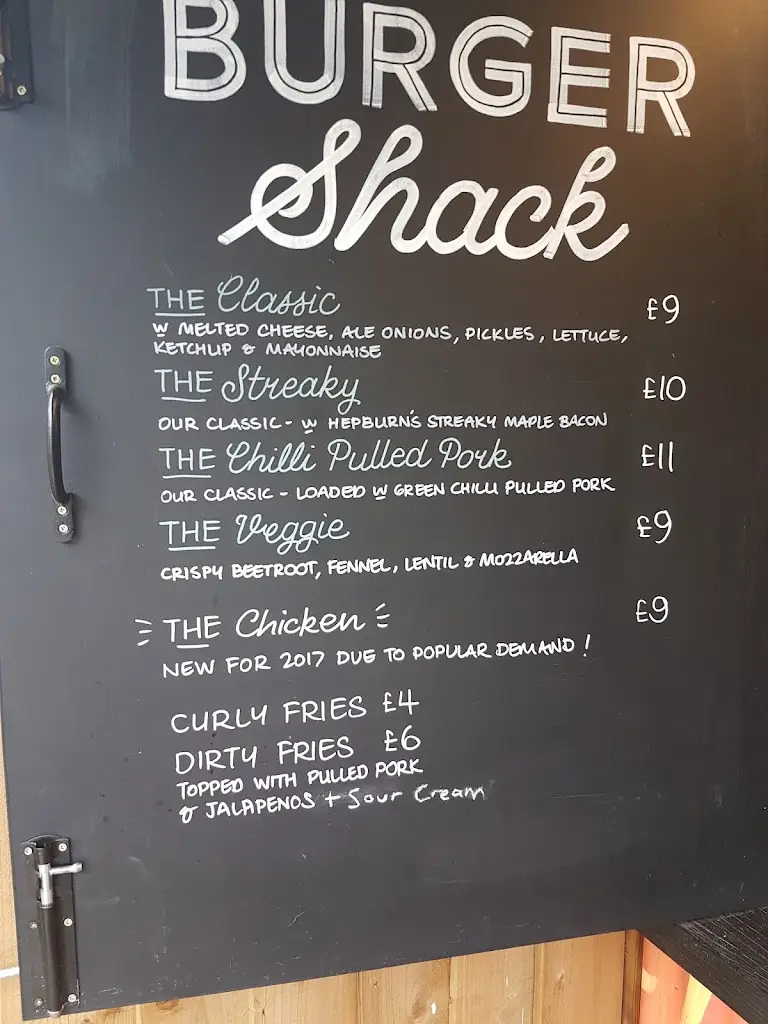 BURGER
Shack
THE Classic £9
W MELTED CHEESE, ALE ONIONS, PICKLES, LETTUCE,
KETCHUP & MAYONNAISE
THE Streaky £10
OUR CLASSIC - W HEPBURN'S STREAKY MAPLE BACON
THE Chilli Pulled Pork £11
OUR CLASSIC - LOADED W GREEN CHILLI PULLED PORK
THE Veggie £9
CRISPY BEETROOT, FENNEL, LENTIL & MOZZARELLA
THE Chicken £9
NEW FOR 2017 DUE TO POPULAR DEMAND!
CURLY FRIES £4
DIRTY FRIES £6
TOPPED WITH PULLED PORK
& JALAPENOS + Sour Cream